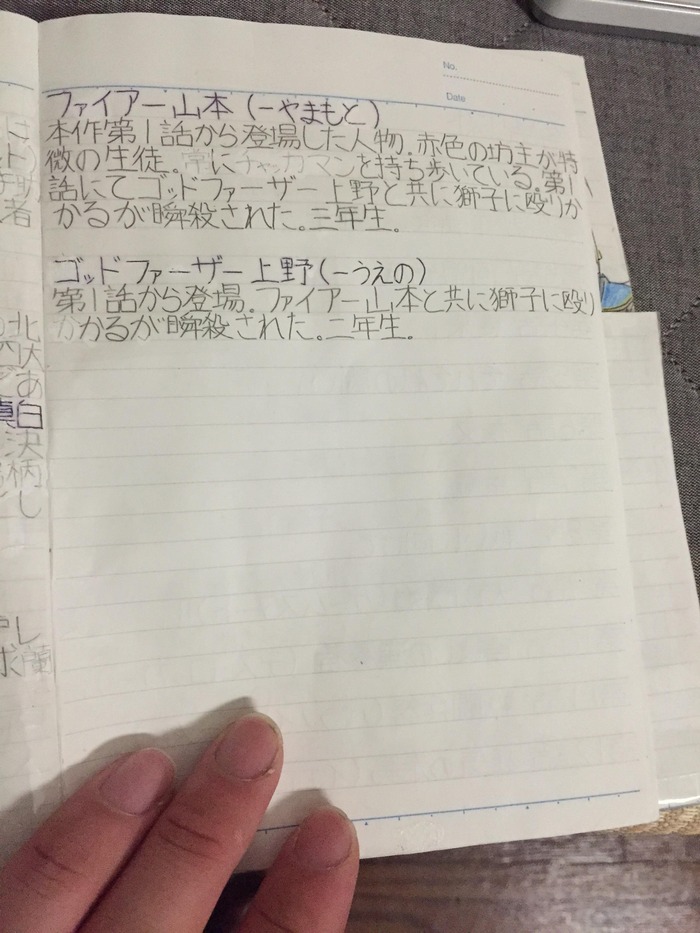 No.
Date
ファイアー山本(ーやまもと)
本作第1話から登場した人物.赤色の坊主が特
徴の生徒.常にチャッカマンを持ち歩いている.第1
話にてゴッドファーザー上野と共に獅子に殴りか
かるが瞬殺された。三年生。
ゴッドファーザー上野(ーうえの)
第1話から登場.ファイアー山本と共に獅子に殴り
かかるが瞬殺された。二年生。